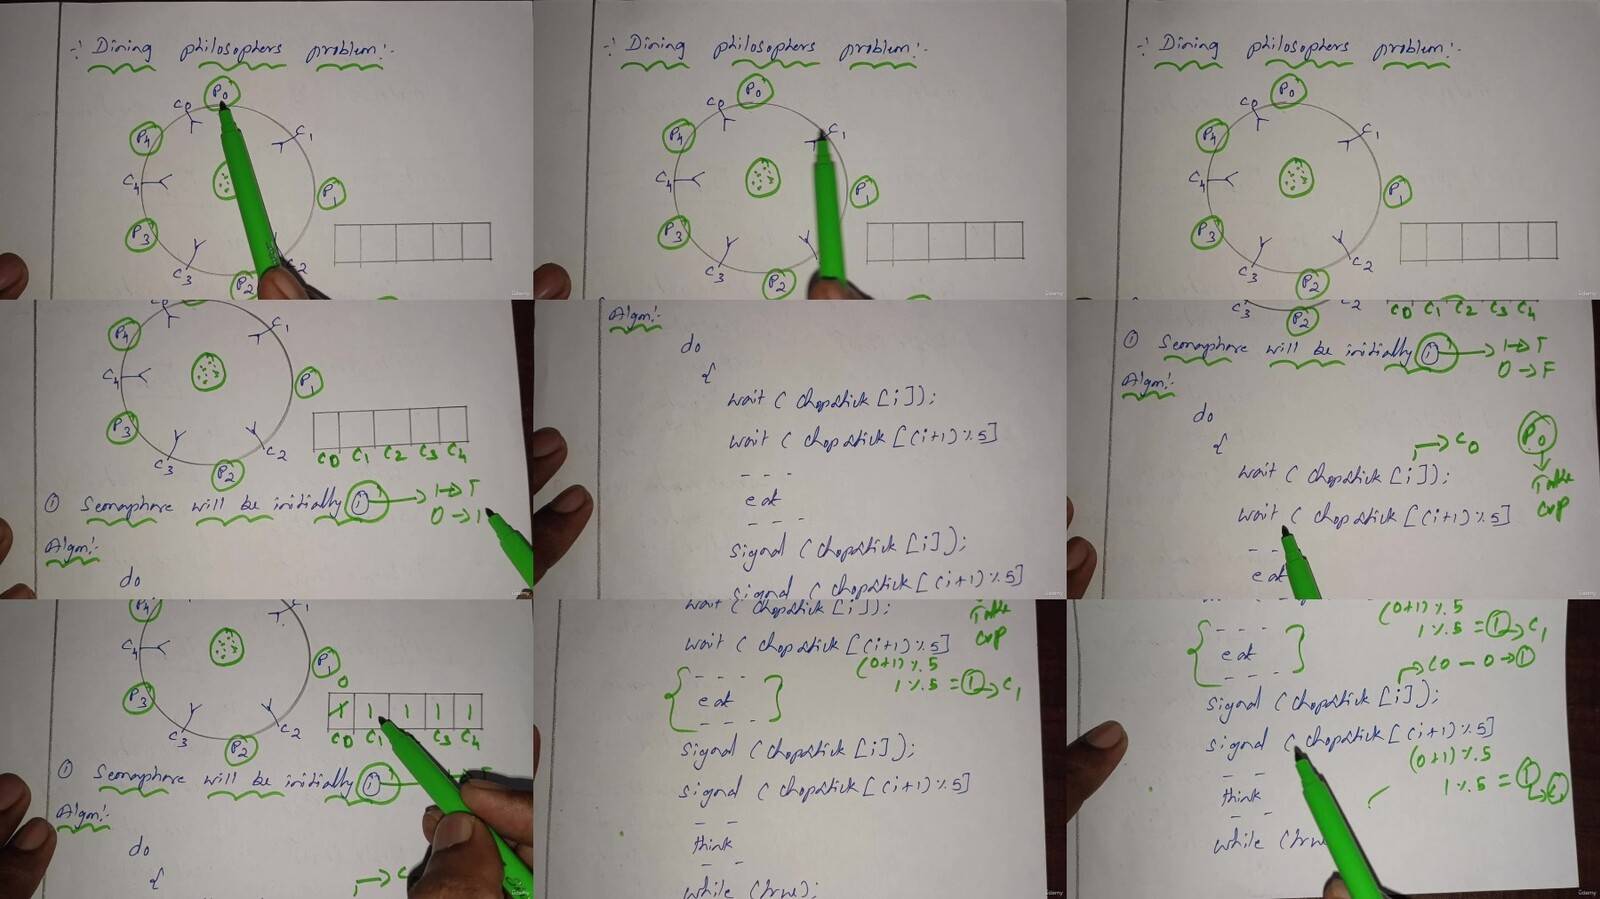 :- Dining philosophers problem:-
P0
C0
C1
P4
C4
P1
P3
C3
C2
P2
:- Dining philosophers problem:-
P0
C0
C1
P4
C4
P1
P3
C3
P2
:- Dining philosophers problem:-
P0
C0
C1
P4
C4
P1
P3
C3
C2
P2
C0
C1
P4
C4
P1
P3
C3
C2
P2
C0 C1 C2 C3 C4
① Semaphore will be initially ① → 1→T
0→
Algm:-
do
Algm:-
do
{
wait ( chopstick [i]);
wait ( chopstick [(i+1)%5]
- - -
eat
- - -
signal ( chopstick [i]);
signal ( chopstick [(i+1)%5]
C3 P2 C2
C0 C1 C2 C3 C4
① Semaphore will be initially ① → 1→T
0→F
Algm:-
do
{
→ C0
P0
wait ( chopstick [i]);
Take
wait ( chopstick [(i+1)%5]
cup
- -
eat
P4
C1
C4
P1
P3
0
1 1 1 1 1
C3
C2
P2
C0 C1 C3 C4
① Semaphore will be initially ①
Algm:-
do
{
wait ( chopstick [i]);
Take
wait ( chopstick [(i+1)%5]
cup
(0+1)%5
1%5 = ① → C1
{ - - -
eat
- - - }
signal ( chopstick [i]);
signal ( chopstick [(i+1)%5]
- -
think
- -
while (true);
(0+1)%5
1%5 = ① → C1
{ - - -
eat
- - - }
→ C0 - 0 → ①
signal ( chopstick [i]);
signal ( chopstick [(i+1)%5]
(0+1)%5
- -
1%5 = ①
think
- -
while (true
Udemy